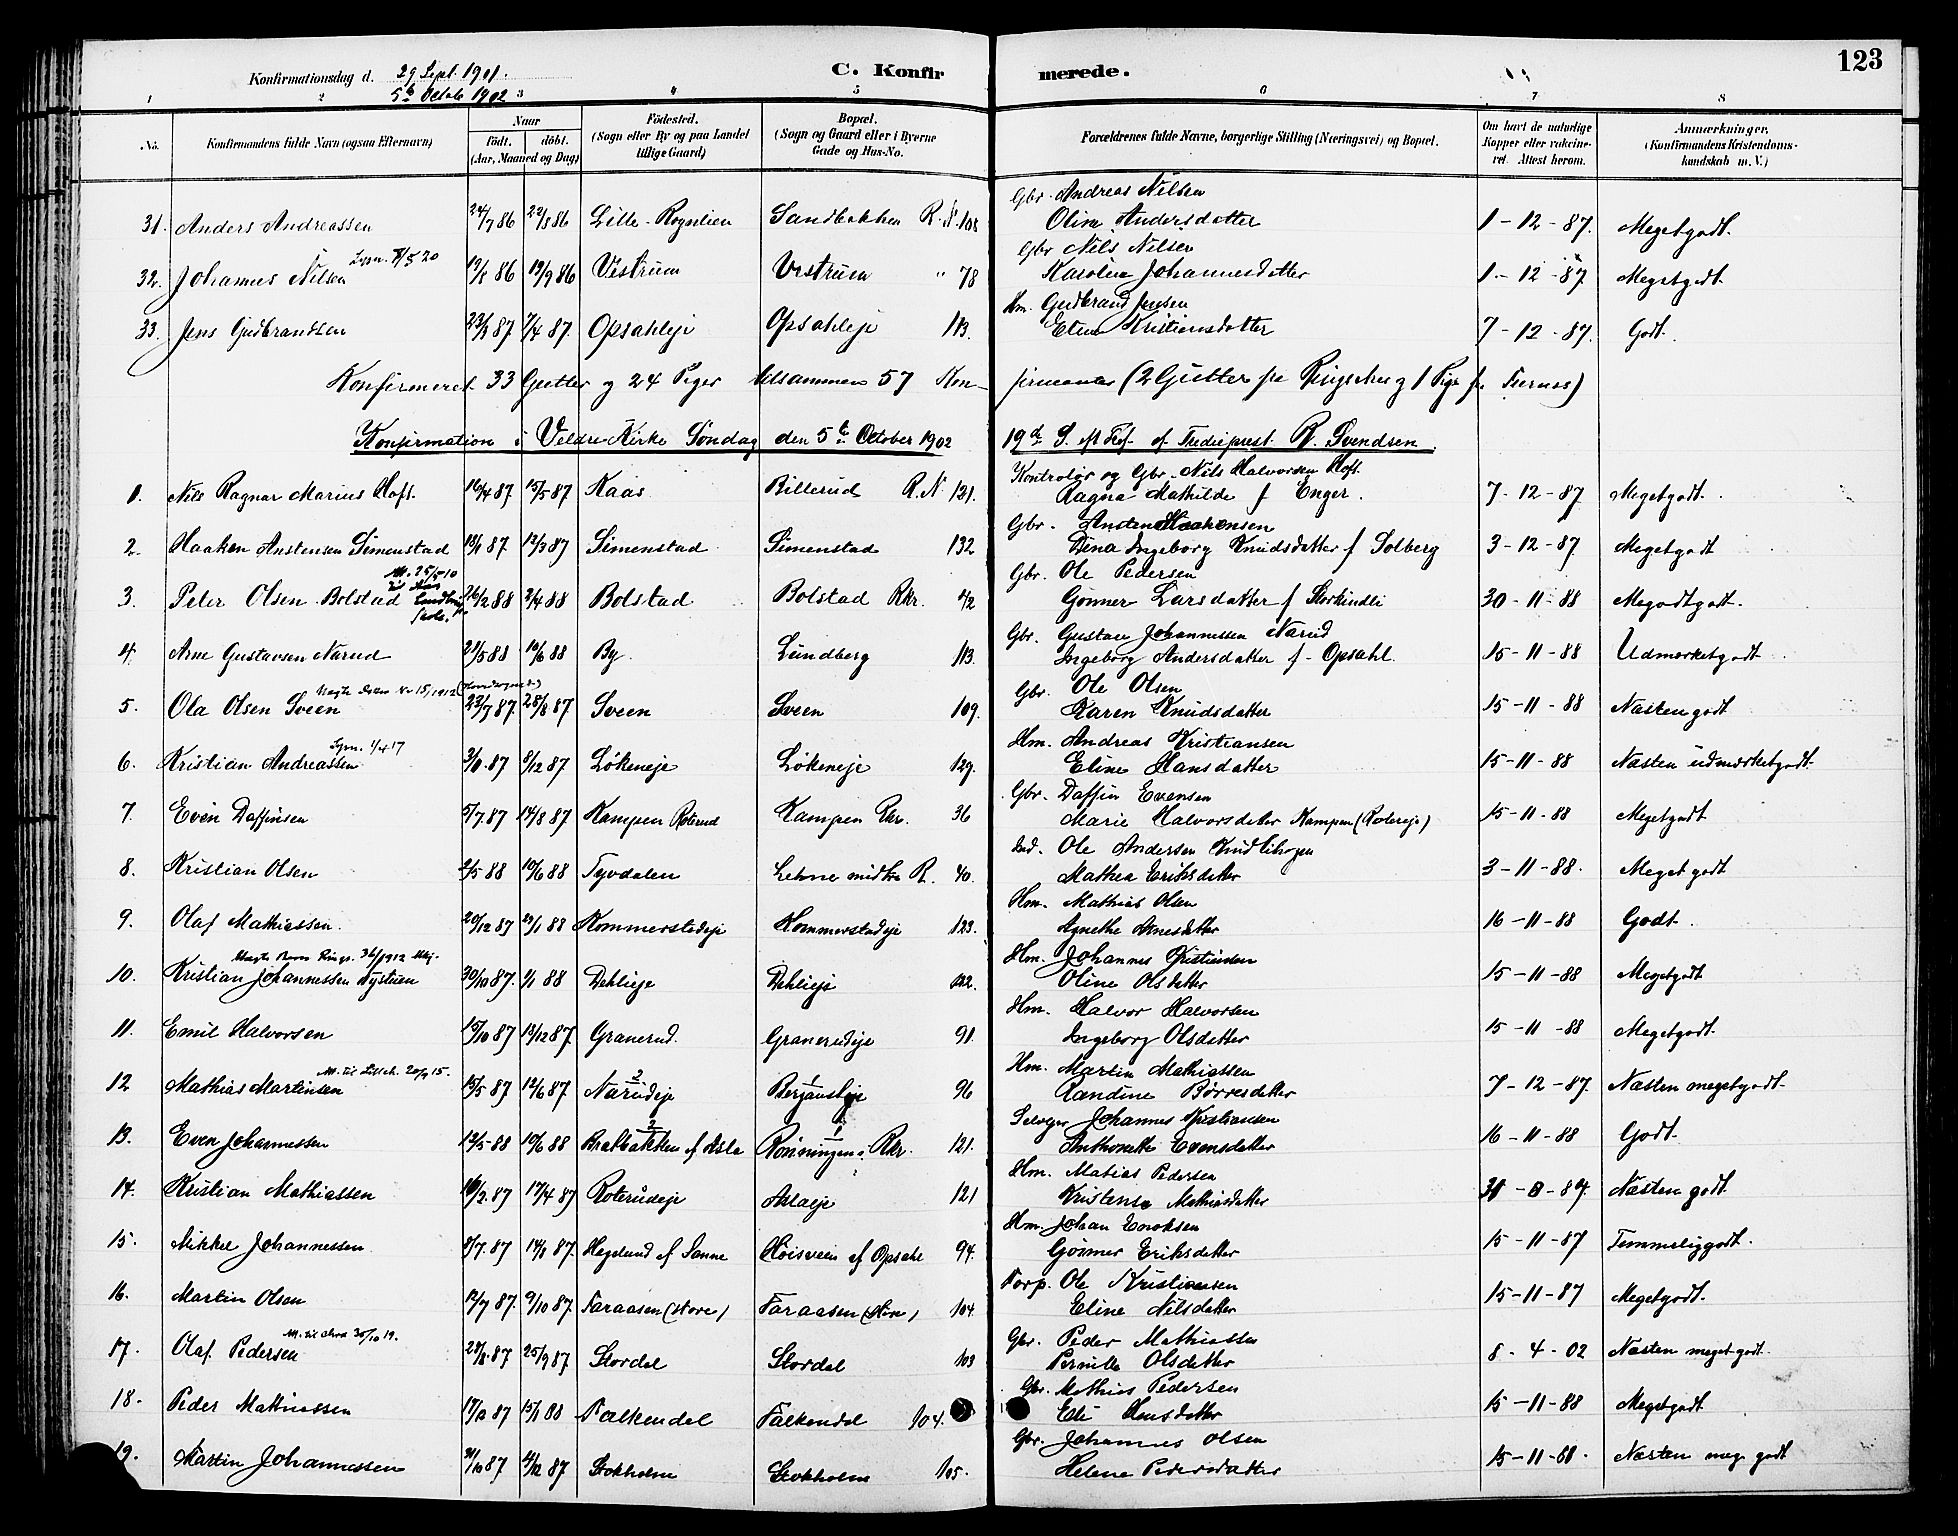 123
Konfirmationsdag d. 29 Sept. 1901.
5te Octob 1902
C. Konfirmerede.
1 2 3 4 5 6 7 8
No. Konfirmandens fulde Navn (ogsaa Efternavn) Naar født. døbt. (Aar, Maaned og Dag) Fødested. (Sogn eller By og paa Landet tillige Gaard) Bopæl. (Sogn og Gaard eller i Byerne Gade og Hus-No. Forældrenes fulde Navne, borgerlige Stilling (Næringsvei) og Bopæl. Om havt de naturlige Kopper eller vakcineret. Attest herom. Anmærkninger. (Konfirmandens Kristendomskundskab m. V.)
Gbr. Andreas Nilsen
31. Anders Andreassen 24/7 86 22/8 86 Lille-Rognlien Sandbakken R.N. 108 Oline Andersdatter 1-12-87. Megetgodt.
Gbr Nils Nilsen
32. Johannes Nilsen 86 19/9 86 Vestrum Vestrum " 78 Karoline Johannesdatter 1-12-87 Megetgodt
Hm. Gudbrand Jensen
33. Jens Gudbrandsen 23/3 87 7/4 87. Opsahleje Opsahleje 113. Eline Kristiansdatter 7-12-87. Godt.
Konfirmeret 33 Gutter og 24 Piger tilsammen 57 Konfirmanter (2 Gutter fra Ringsaker og 1 Pige fra Furnes)
Konfirmation i Veldre Kirke Søndag den 5te October 1902 19de S. eft Tref. af Tredieprest R. Svendsen.
Kontrolør og Gbr. Nils Halvorsen Hoft
1. Nils Ragnar Marius Hoft. 16/4 87 15/5 87 Kaas Billerud R.N 121. Ragna Mathilde f Enger. 7-12-87 Megetgodt.
Gbr. Ansten Haakensen
2. Haaken Anstensen Simenstad 18/1 87. 13/3 87 Simenstad Simenstad 132 Dina Ingeborg Knudsdatter f Solberg 3-12-87 Megetgodt
At. 25/5 10 til Aas
Gbr. Ole Pedersen
3. Peter Olsen Bolstad 26/2 88 2/4 88 Bolstad Bolstad Rkr. 42 Gønner Larsdatter f Storkindli 30-11-88 Megedtgodt.
Gbr. Gustav Johannessen Narud
4. Arne Gustavsen Narud 21/5 88 10/6 88 By. Lundberg 113. Ingeborg Andersdatter f. Opsahl. 15-11-88 Udmærketgodt
Gbr. Ole Olsen
5. Ola Olsen Sveen 22/7 87. 28/8 87 Sveen Sveen 109. Karen Knudsdatter 15-11-88 Næsten godt
Lysn. 1/4 17
Hm. Andreas Kristiansen
6. Kristian Andreassen 87 8/12 87 Løkeneje Løkeneje 129. Eline Hansdatter 15-11-88 Næsten udmærketgodt
Gbr. Daffin Evensen
7. Even Daffinsen 5/7 87 14/8 87 Kampen Roterud Kampen Rkr. 36 Marie Halvorsdatter Kampen (Rotereje) 15-11-88 Megetgodt
Ind. Ole Andersen Knutlihagen
8. Kristian Olsen 2/5 88 10/6 88 Tyvdalen Lehne midtre R. 40. Mathea Eriksdatter 3-11-88. Meget godt
Hm. Mathias Olsen
9. Olaf Mathiassen. 20/12 87 29/1 88 Kommerstadeje Kommerstadeje 123. Agnethe Arnesdatter 16-11-88 Godt.
Hm. Johannes Kristiansen
10. Kristian Johannessen Nysteien 30/10 87. 1/1 88 Dehlieje Dehlieje 122. Oline Olsdatter 15-11-88 Megetgodt
Hm. Halvor Halvorsen
11. Emil Halvorsen 15/10 87 13/12 87. Granerud. Granerudeje 91. Ingeborg Olsdatter 15-11-88 Megetgodt.
At. til Lilleh. 20/9 15.
Hm. Martin Mathiassen
12 Mathias Martinsen 15/5 87 12/6 87 Narudeje 96 Randine Børresdatter 7-12-87. Næsten megetgodt.
Selveier Johannes Kristiansen
13. Even Johannessen 13/5-88 10/6 88 Bratbakken af Asla Rønningen Rkr. 121. Anthonette Evensdatter 16-11-88 Godt.
Hm. Matias Pedersen
14. Kristian Mathiassen 16/2.87 17/4 87 Roterudeje Aslaeje 121 Kristense Mathiasdatter Næsten godt
Hm. Johan Enoksen
15. Mikkel Johannessen 8/7.87 14/8 87. Hageland af Sanne Høisveen af Opsahl 94. Gønner Eriksdatter 15-11-87 Temmeliggodt.
Torp. Ole Kristiansen
16. Martin Olsen 12/7 87. 9/10 87. Faraasen (store) Faraasen (store) 104. Eline Nilsdatter 15-11-87 Megetgodt.
30/10 19.
Gbr. Peder Mathiassen
17. Olaf Pedersen 28/8.87 25/9 87 Stordal Stordal 103 Pernille Olsdatter 8-4-02 Næsten megetgodt.
Gbr. Mathias Pedersen
18. Peder Mathiassen 87 15/1 88 Falkendal Falkendal 104. Eli Hansdatter 15-11-88 Megetgodt
Gbr. Johannes Olsen
19. Martin Johannessen 31/10 87 4/12 87 Stokholm Stokholm 105. Helene Pedersdatter Næsten meg. godt